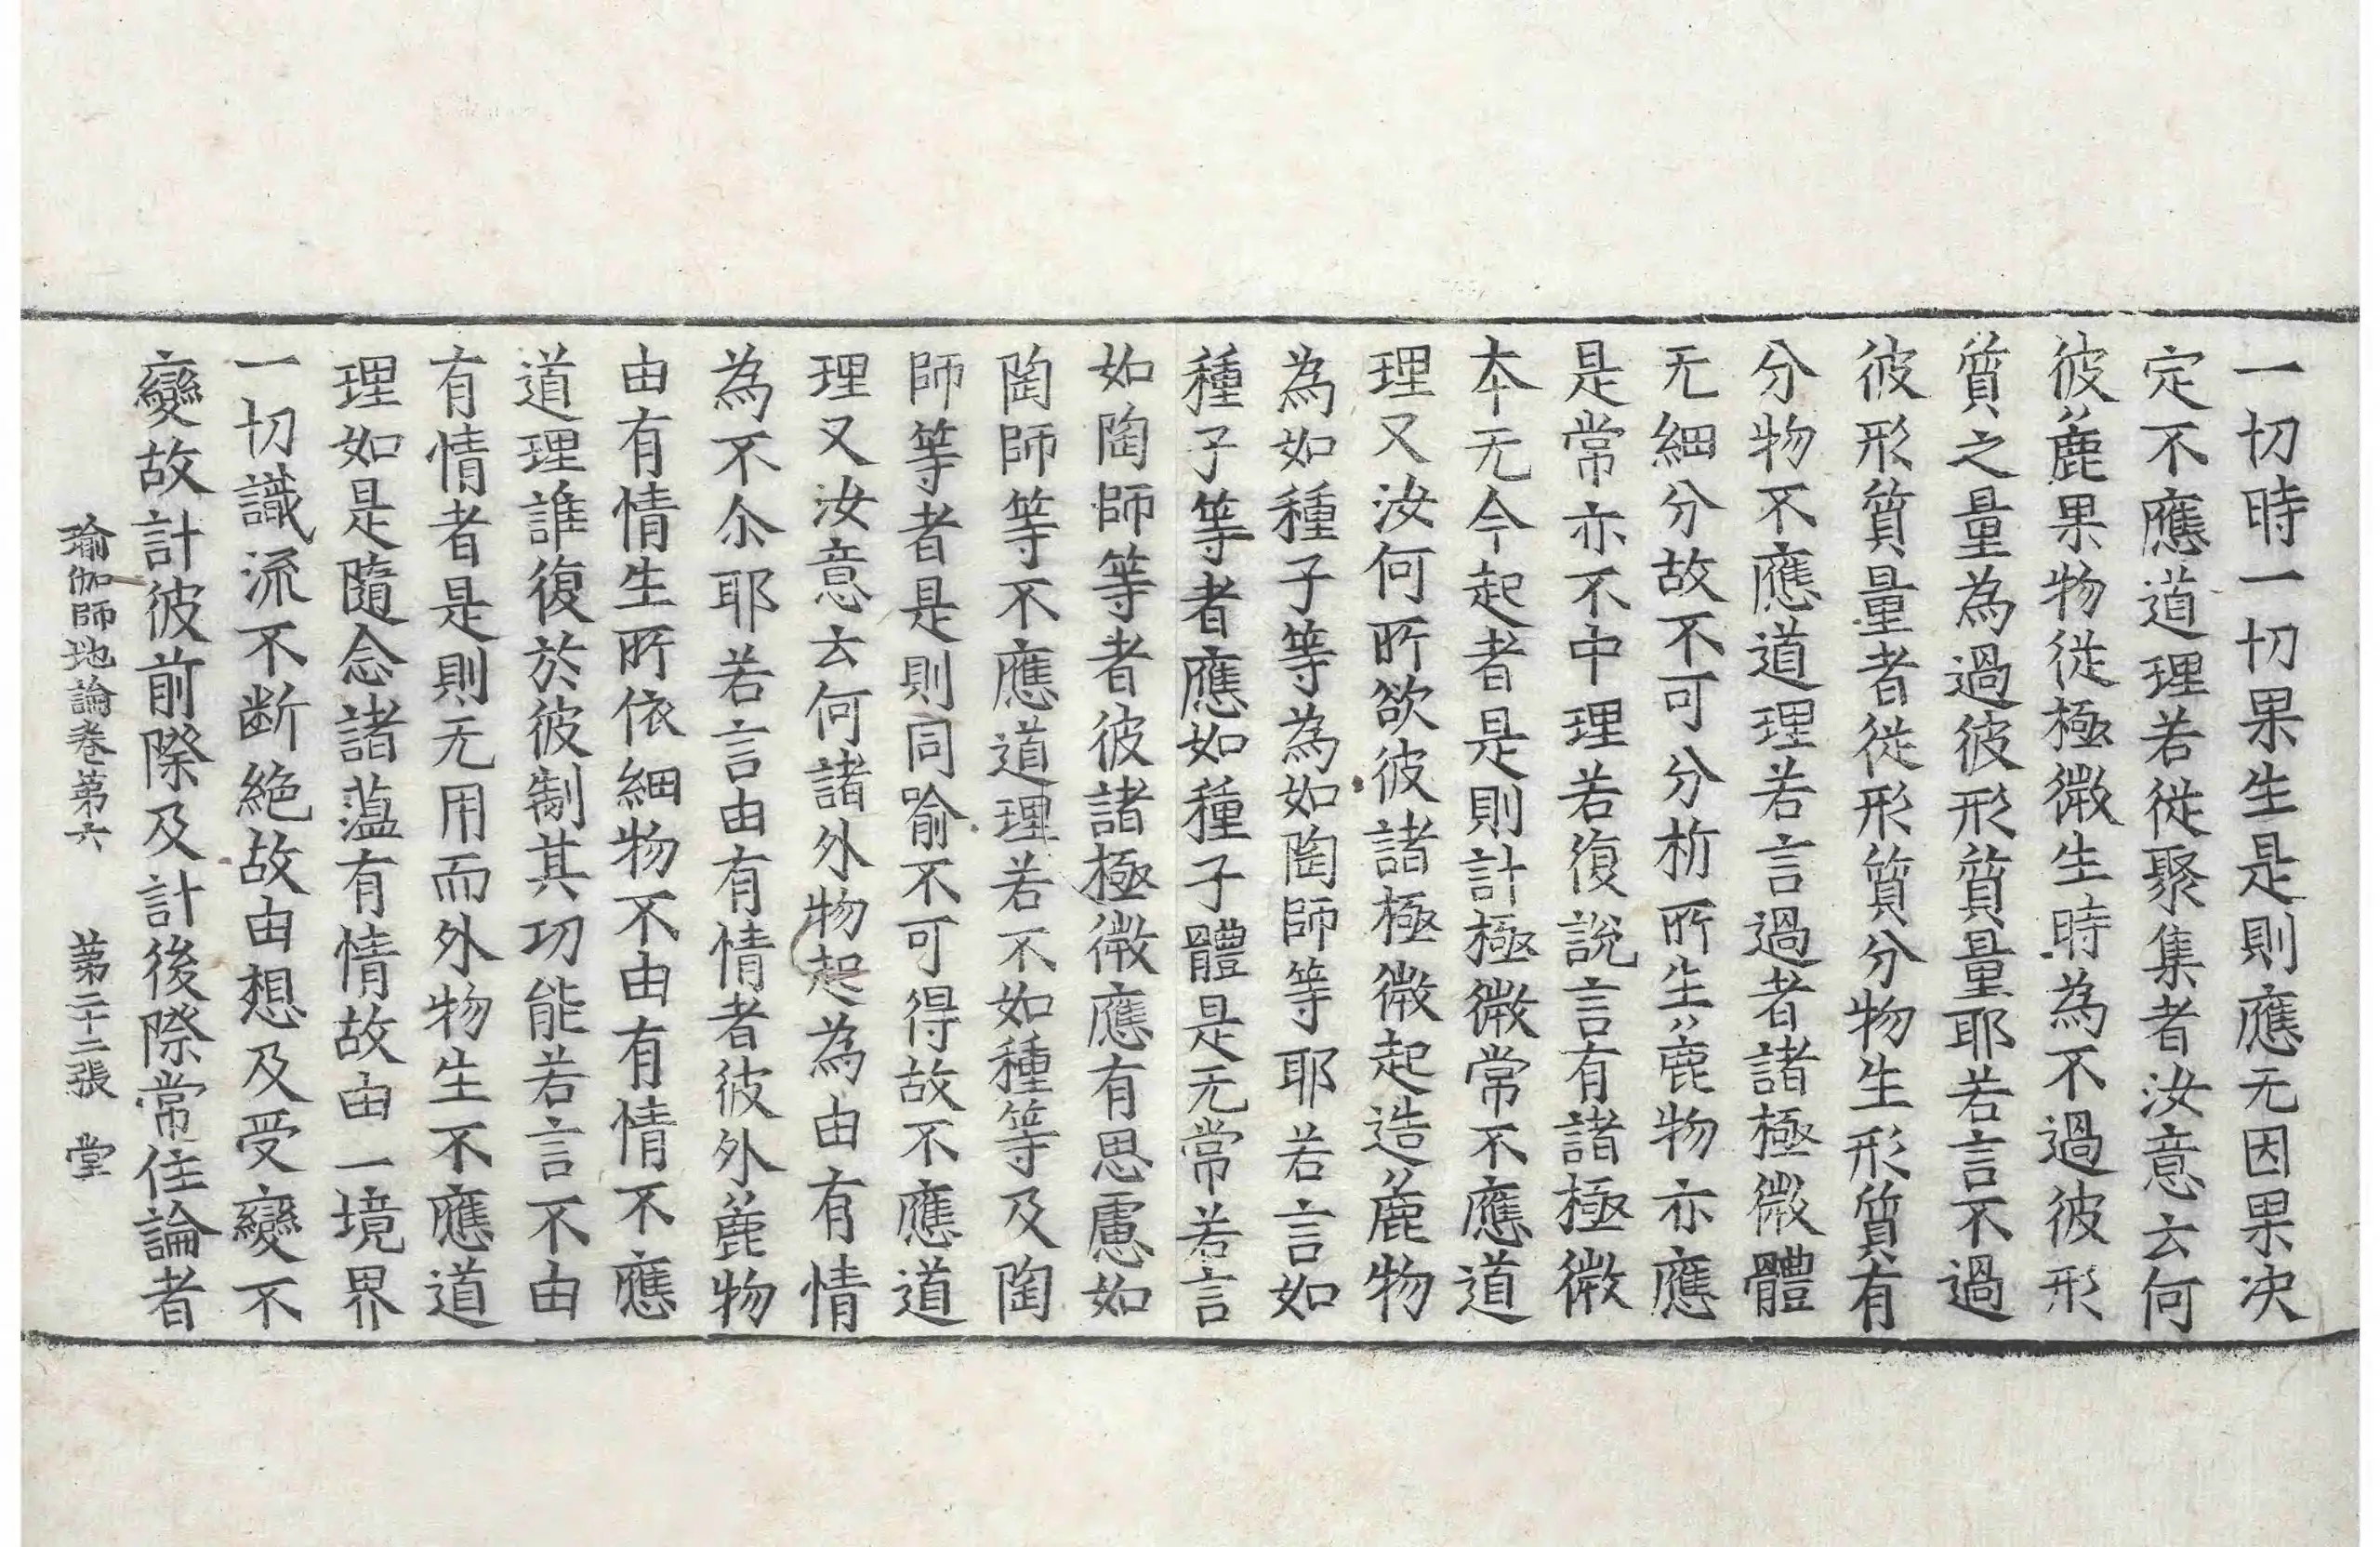 一切時一切果生是則應无因果决
定不應道理若從聚集者汝意云何
彼麁果物從極微生時為不過彼形
質之量為過彼形質量耶若言不過
彼形質量者從形質分物生形質有
分物不應道理若言過者諸極微體
无細分故不可分析所生麁物亦應
是常亦不中理若復說言有諸極微
本无今起者是則計極微常不應道
理又汝何所欲彼諸極微起造麁物
為如種子等為如陶師等耶若言如
種子等者應如種子體是无常若言
如陶師等者彼諸極微應有思慮如
陶師等不應道理若不如種等及陶
師等者是則同喻不可得故不應道
理又汝意云何諸外物起為由有情
為不尒耶若言由有情者彼外麁物
由有情生所依細物不由有情不應
道理誰復於彼制其功能若言不由
有情者是則无用而外物生不應道
理如是隨念諸薀有情故由一境界
一切識流不断絕故由想及受變不
變故計彼前際及計後際常住論者
瑜伽師地論卷第六　第二十二張　堂